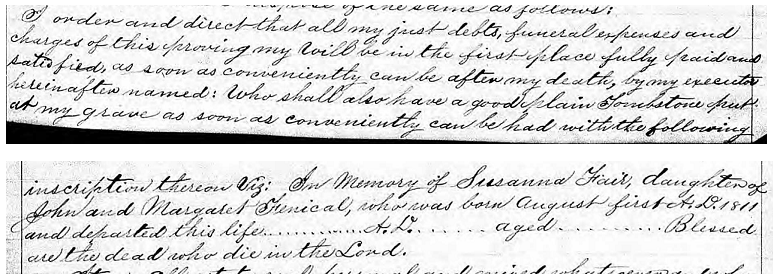 of the same as follows:
I order and direct that all my just debts, funeral expenses and
charges of this proving my Will be in the first place fully paid and
satisfied, as soon as conveniently can be after my death, by my executor
hereinafter named: Who shall also have a good plain Tombstone put
at my grave as soon as conveniently can be had with the following
inscription thereon Viz: In Memory of Susanna Fair, daughter of
John and Margaret Fenical, who was born August first A.D. 1811
and departed this life............A.D....... aged.......... Blessed
are the dead who die in the Lord.